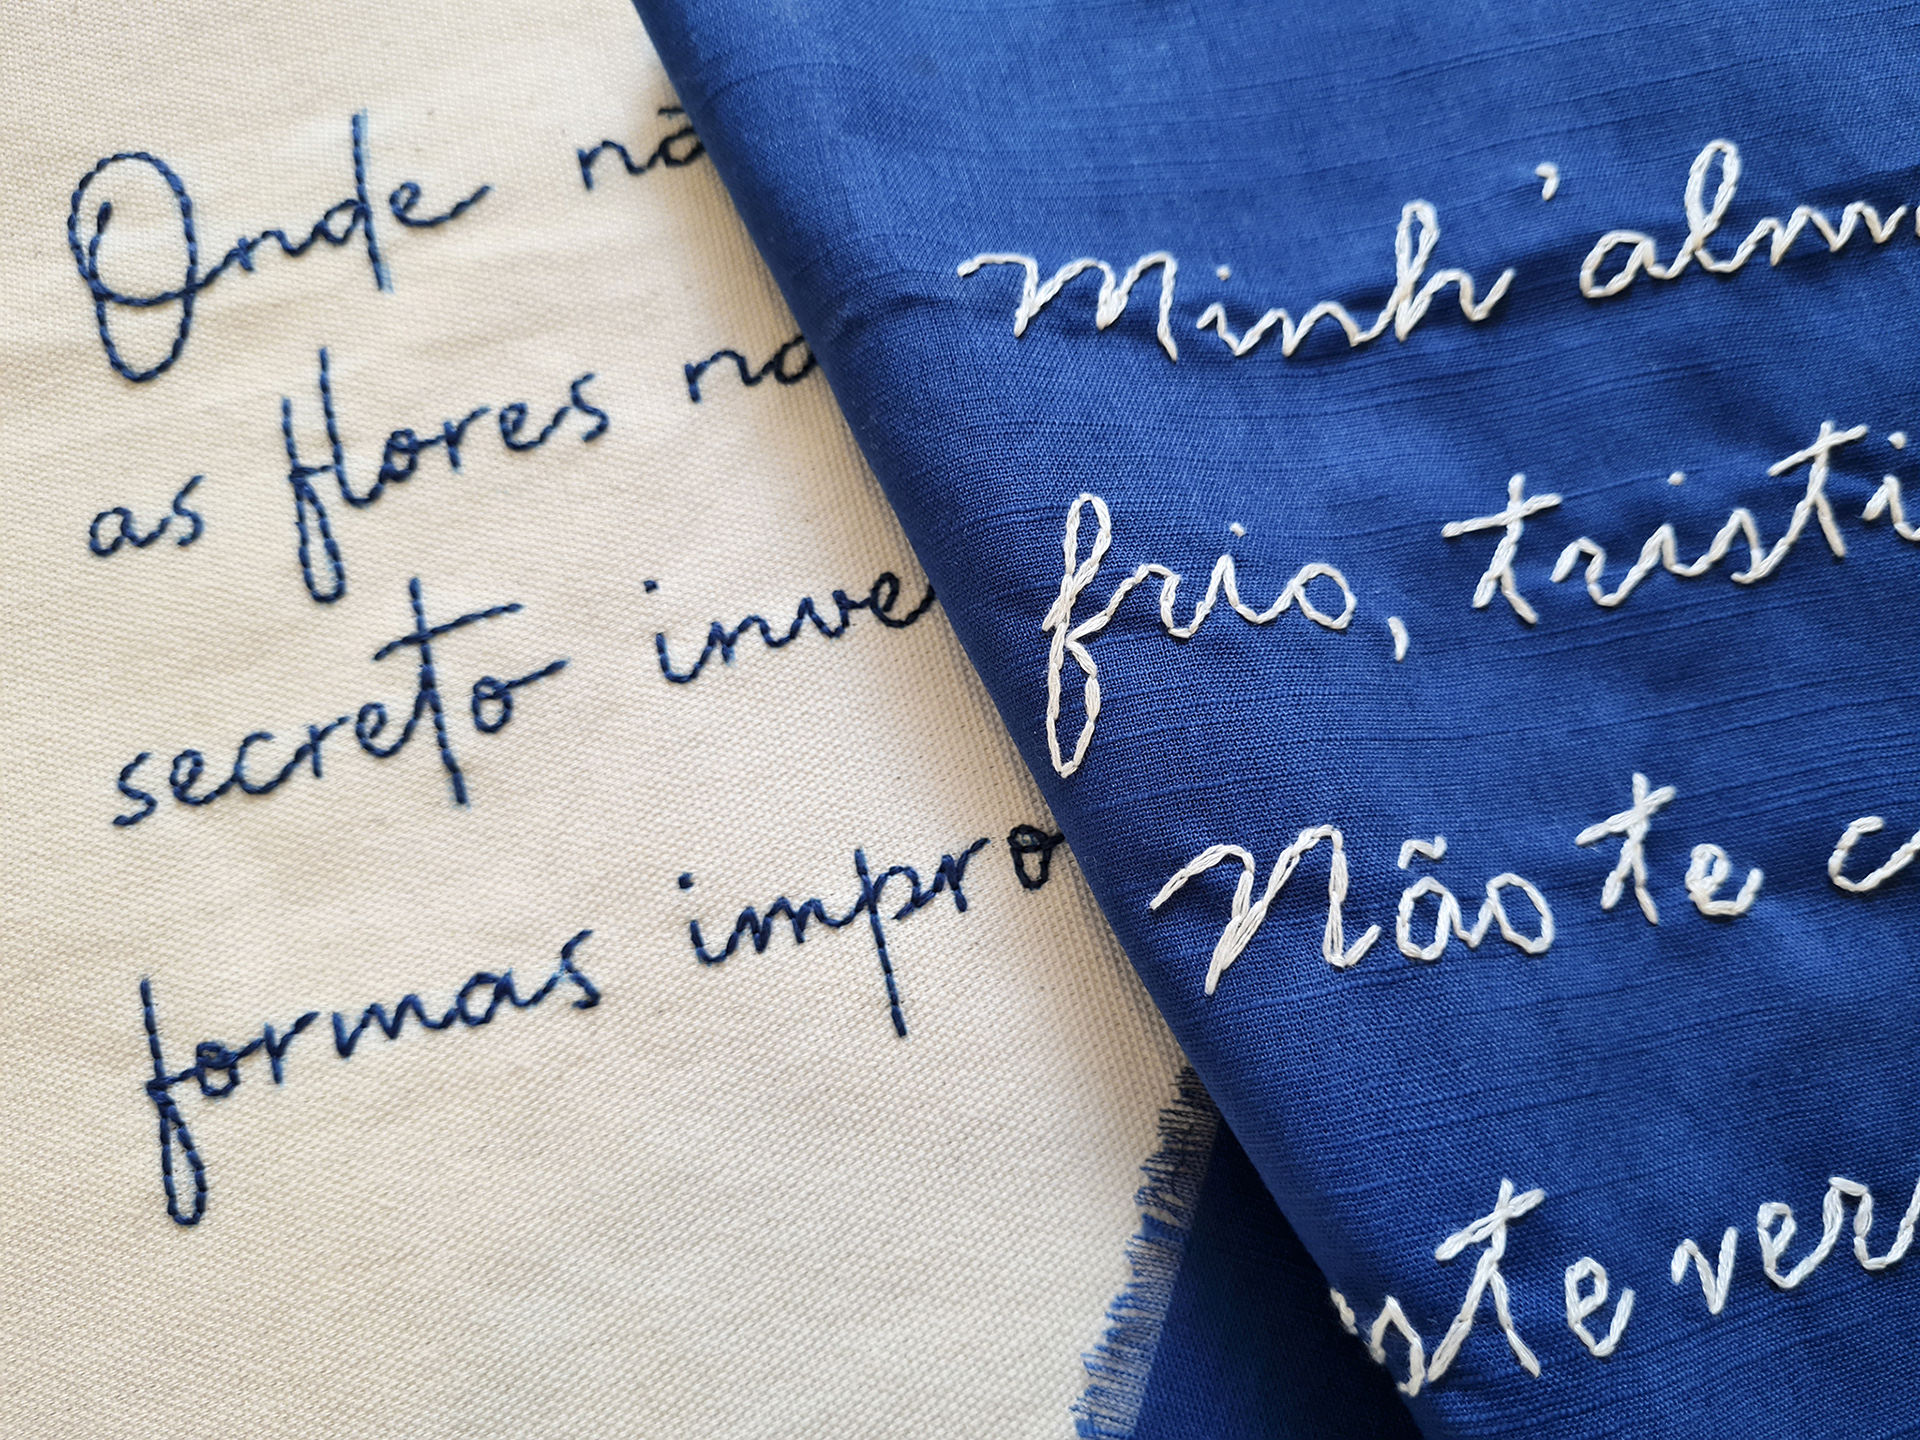 Onde nã
as flores nã
secreto inve
formas impro
Minh'alm
frio, tristi
Não te c
ste ver